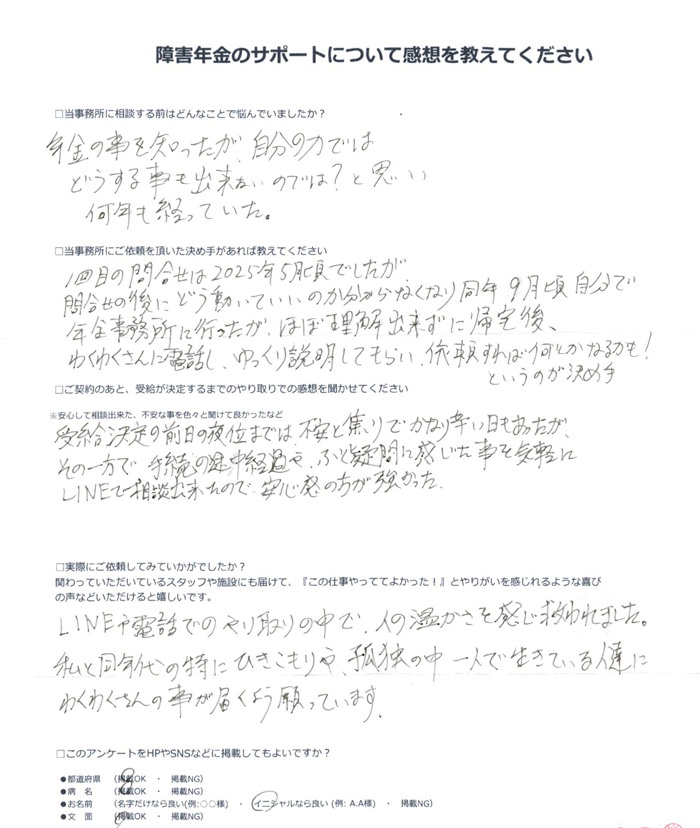 障害年金のサポートについて感想を教えてください
□当事務所に相談する前はどんなことで悩んでいましたか？
年金の事を知ったが、自分の力では
どうする事も出来ないのでは？と思い
何年も経っていた。
□当事務所にご依頼を頂いた決め手があれば教えてください
1回目の問合せは2025年5月頃でしたが
問合せの後にどう動いていいのか分からなくなり同年9月頃自分で
年金事務所に行ったが、ほぼ理解出来ずに帰宅後、
わくわくさんに電話し、ゆっくり説明してもらい、依頼すれば何とかなるかも!
というのが決め手
□ご契約のあと、受給が決定するまでのやり取りでの感想を聞かせてください
※安心して相談出来た、不安な事を色々と聞けて良かったなど
受給決定の前日の夜位までは、不安と焦りでかなり辛い日もあったが、
その一方で、手続の途中経過や、ふと疑問に感じた事を気軽に
LINEで相談出来たので、安心感の方が強かった。
□実際にご依頼してみていかがでしたか？
関わっていただいているスタッフや施設にも届けて、『この仕事やっててよかった！』とやりがいを感じれるような喜び
の声などいただけると嬉しいです。
LINEや電話でのやり取りの中で、人の温かさを感じ救われました。
私と同年代の特にひきこもりや、孤独の中一人で生きている人達に
わくわくさんの事が届くよう願っています。
□このアンケートをHPやSNSなどに掲載してもよいですか？
●都道府県 （掲載OK ・ 掲載NG）
●病 名 （掲載OK ・ 掲載NG）
●お名前 （名字だけなら良い(例:○○様) ・ イニシャルなら良い (例: A.A様) ・ 掲載NG）
●文 面 （掲載OK ・ 掲載NG）